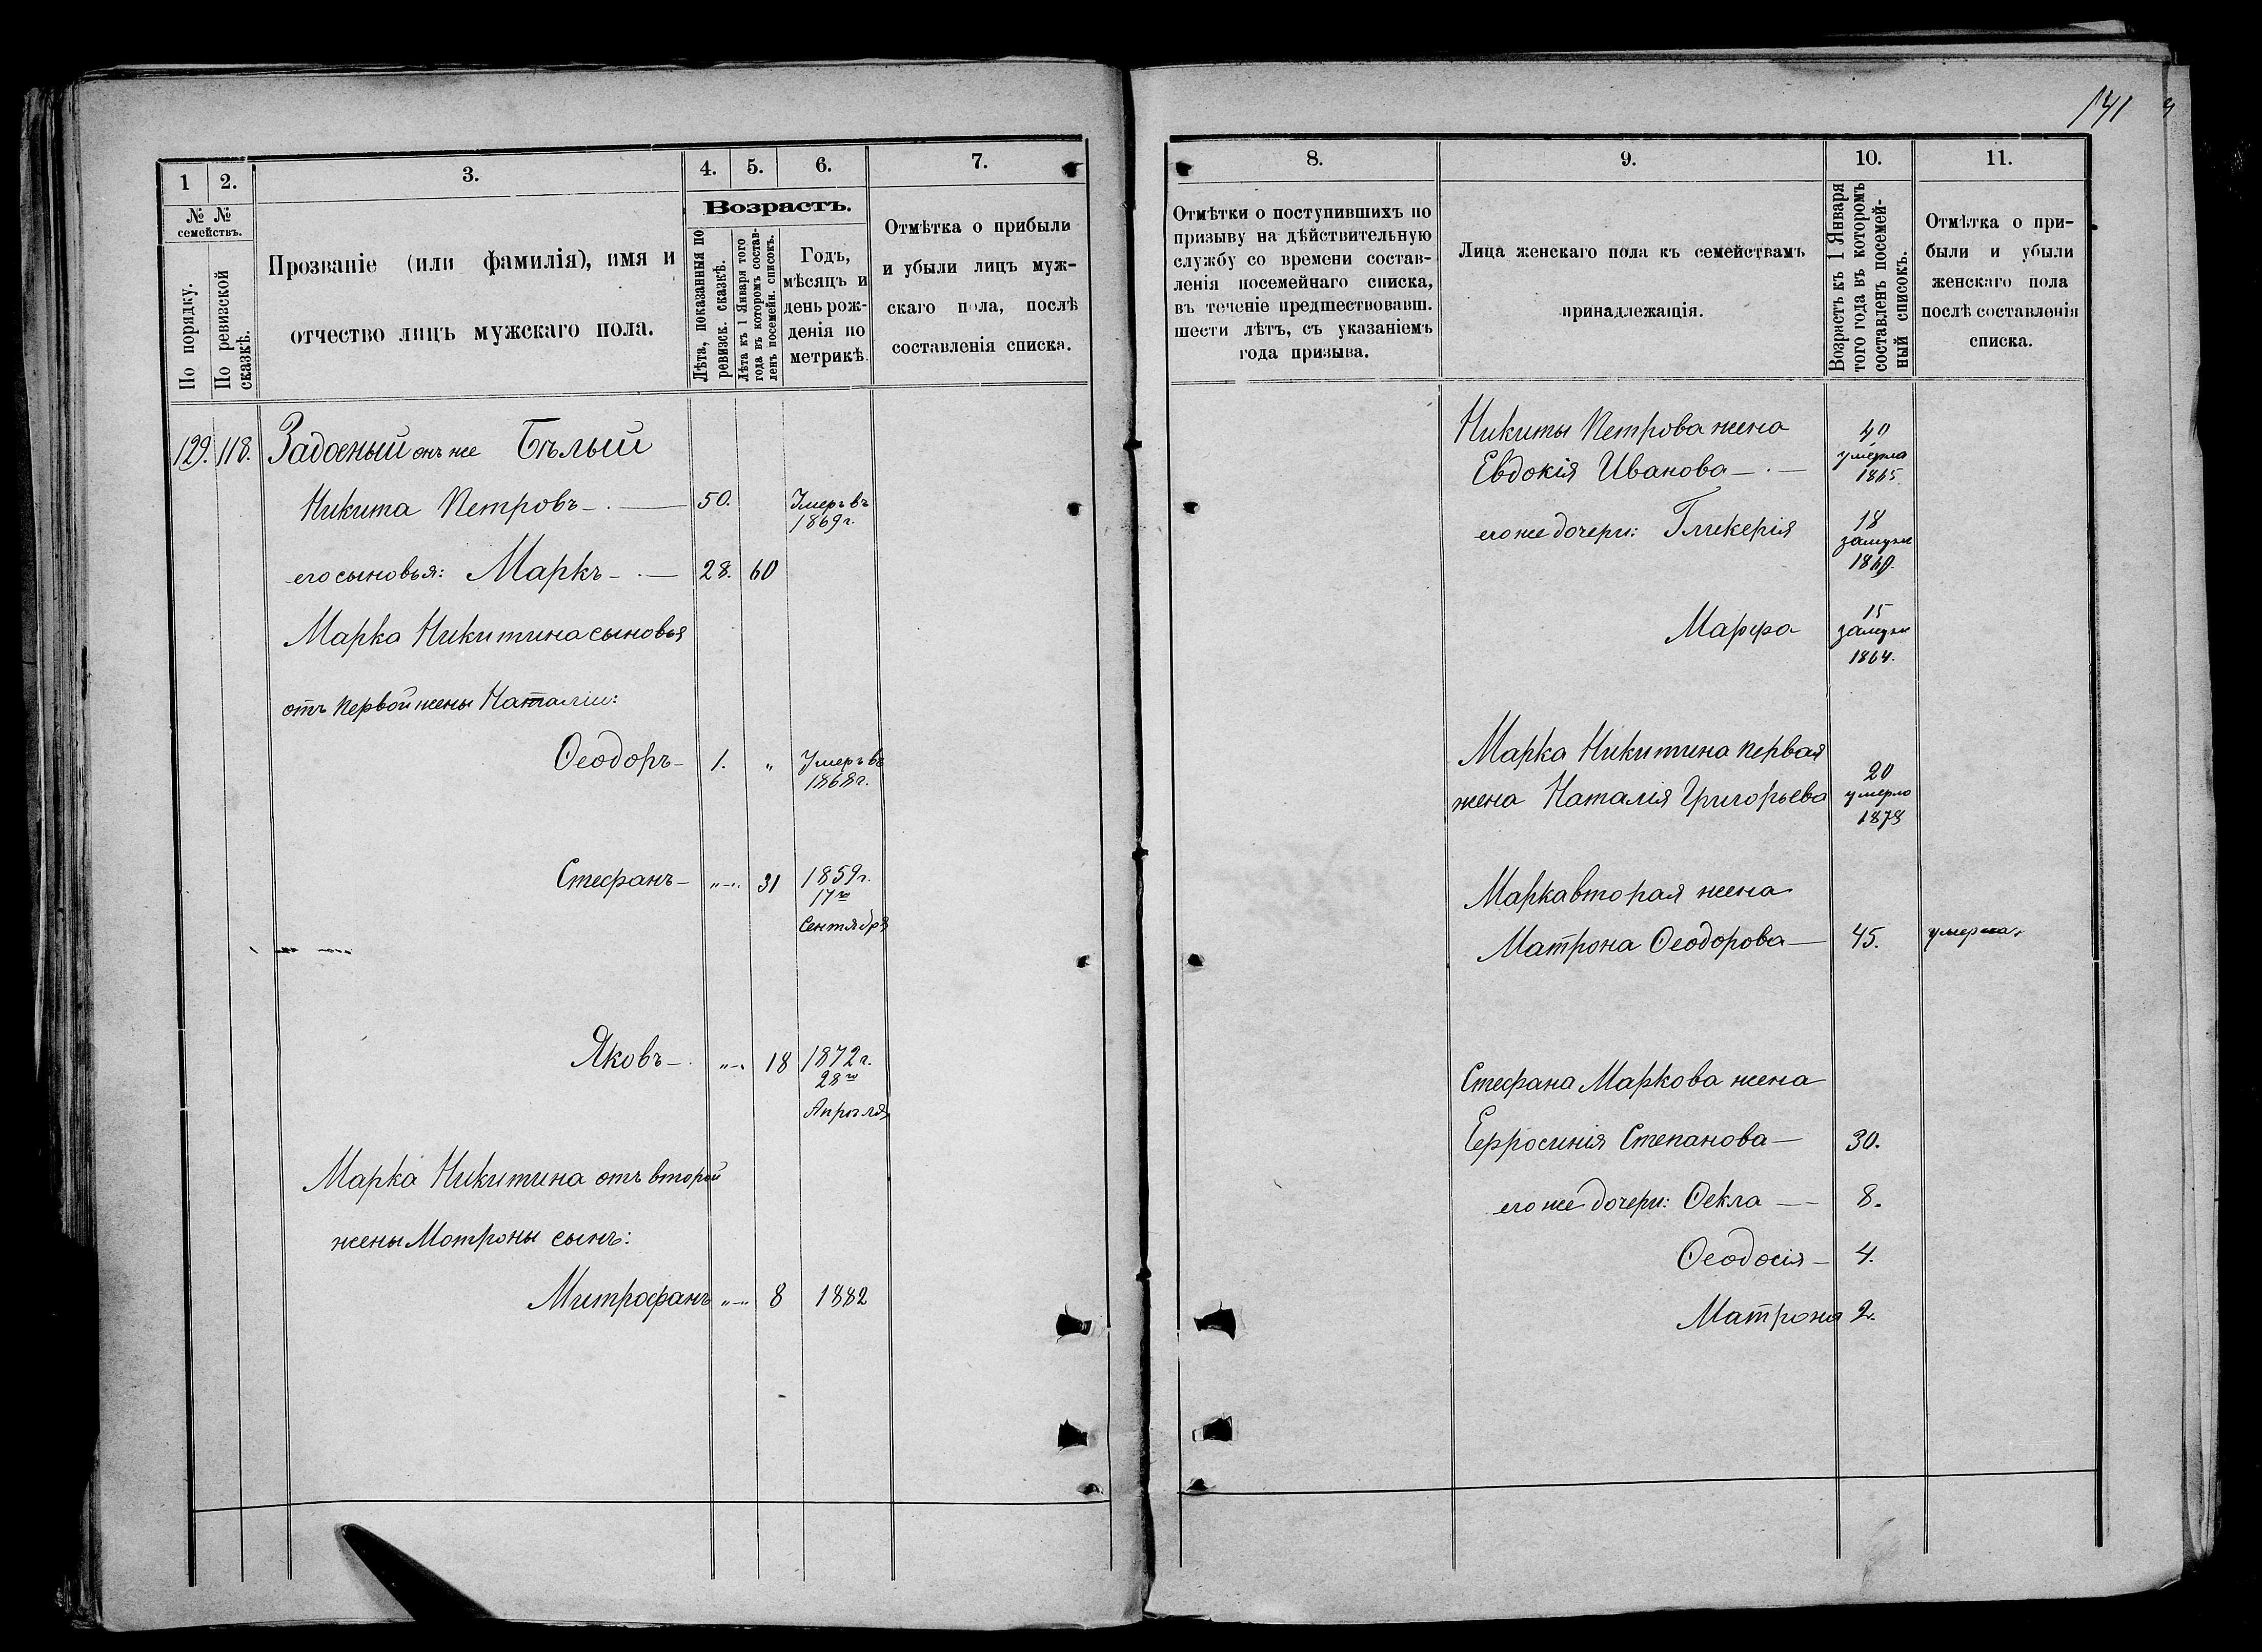 141
1
2.
3.
4.
5.
6.
7.
№ №
семействъ.
По порядку.
По ревизской
сказкѣ.
Прозваніе (или фамилія), имя и
отчество лицъ мужскаго пола.
Возрастъ.
Лѣта, показанныя по
ревизск. сказкѣ.
Лѣта къ 1 Января того
года въ которомъ состав-
ленъ посемейн. списокъ.
Годъ,
мѣсяцъ и
день рож-
денія по
метрикѣ.
Отмѣтка о прибыли
и убыли лицъ муж-
скаго пола, послѣ
составленія списка.
129. 118. онъ же Бѣлый
Никита Петровъ 50. Умеръ въ
1869 г.
его сыновья: Маркъ 28. 60
Марка Никитина сыновья
отъ первой жены Наталіи:
Ѳеодоръ 1. " Умеръ въ
1868 г.
Стефанъ "-". 31 1859 г.
17го
Сентября
Яковъ "-". 18 1872 г.
28го
Апрѣля
Марка Никитина отъ второй
жены Мотроны сынъ:
Митрофанъ "-" 8 1882
8.
9.
10.
11.
Отмѣтки о поступившихъ по
призыву на дѣйствительную
службу со времени состав-
ленія посемейнаго списка,
въ теченіе предшествовавш.
шести лѣтъ, съ указаніемъ
года призыва.
Лица женскаго пола къ семействамъ
принадлежащія.
Возрастъ къ 1 Января
того года въ которомъ
составленъ посемей-
ный списокъ.
Отмѣтка о при-
были и убыли
женскаго пола
послѣ составленія
списка.
Никиты Петрова жена 40
Евдокія Иванова умерла
1865
его же дочери: Гликерія 18
замуж
1860.
Марфа 15
замуж
1864.
Марка Никитина первая
жена Наталія Григорьева 20
умерла
1878
Марка вторая жена
Матрона Ѳеодорова 45. умерла.
Стефана Маркова жена
Ефросинія Степанова 30.
его же дочери: Ѳекла 8.
Ѳеодосія 4.
Матрона 2.